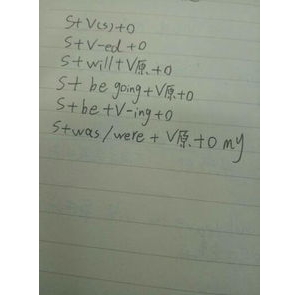 S+V(s)+O
S+V-ed+O
S+will+V原.+O
S+ be going+V原.+O
S+be+V-ing+O
S+was/were + V原.+O my